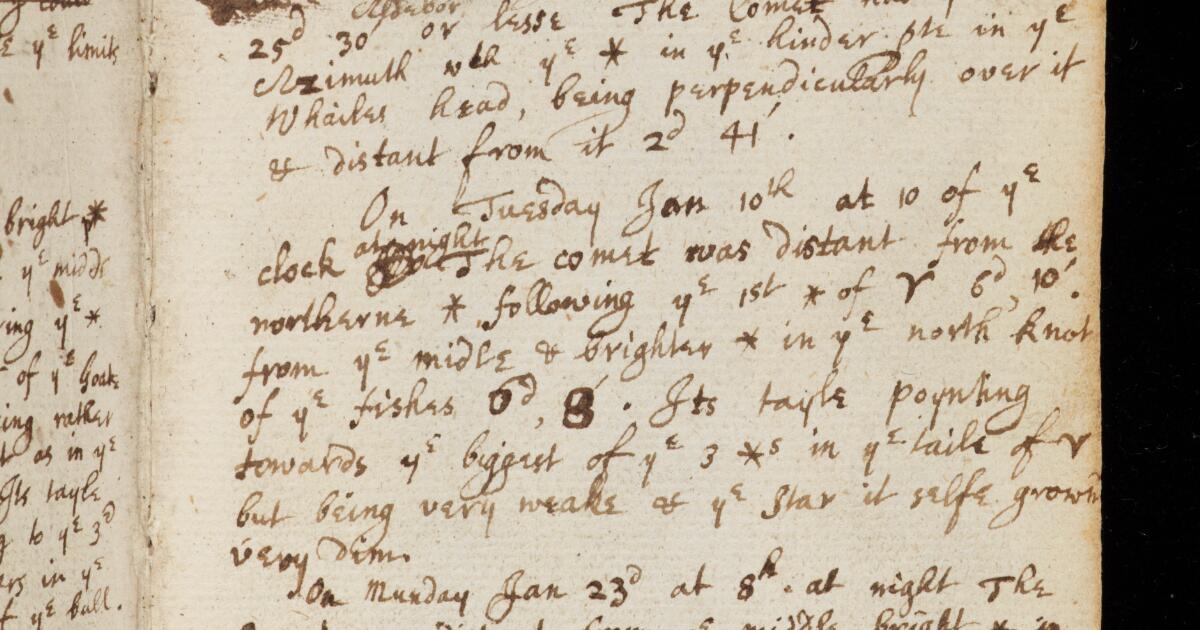 limits
bright *
yᵉ midds
ring yᵉ *
of yᵉ Goate
ing rather
as in yᵉ
Its tayle
to yᵉ 3ᵈ
ars in yᵉ
yᵉ bull.
25ᵈ 30′ or lesse The Comet
Azimuth wth yᵉ * in yᵉ hinder pte in yᵉ
Whailes head, being perpendicularly over it
& distant from it 2ᵈ 41′.
On Tuesday Jan 10th at 10 of yᵉ
clock at night The comet was distant from the
northerne * following yᵉ 1st * of ♈ 6ᵈ, 10′.
from yᵉ midle & brighter * in yᵉ north knot
of yᵉ fishes 6ᵈ, 8′. Its tayle poynting
towards yᵉ biggest of yᵉ 3 *s in yᵉ taile of ♈
but being very weake & yᵉ Star it selfe grown
very dim.
On Munday Jan 23ᵈ at 8h. at night The
middle bright * in